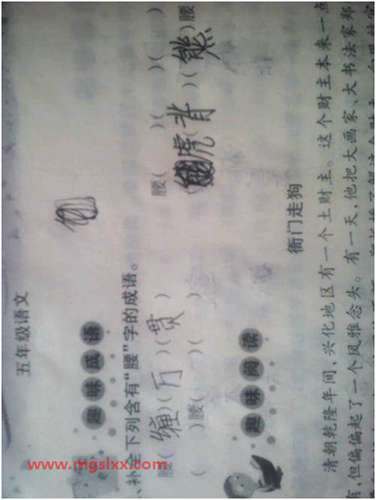 五年级语文
趣味成语
、补全下列含有“腰”字的成语。
腰(缠)(万)(贯) 腰( )( )( )
( )腰( )( ) (虎)(背)(熊)腰
趣味阅读
衙门走狗
清朝乾隆年间,兴化地区有一个土财主。这个财主本来一点
有,但偏偏起了一个风雅念头。有一天,他把大画家、大书法家郑
www.mgslxx.com